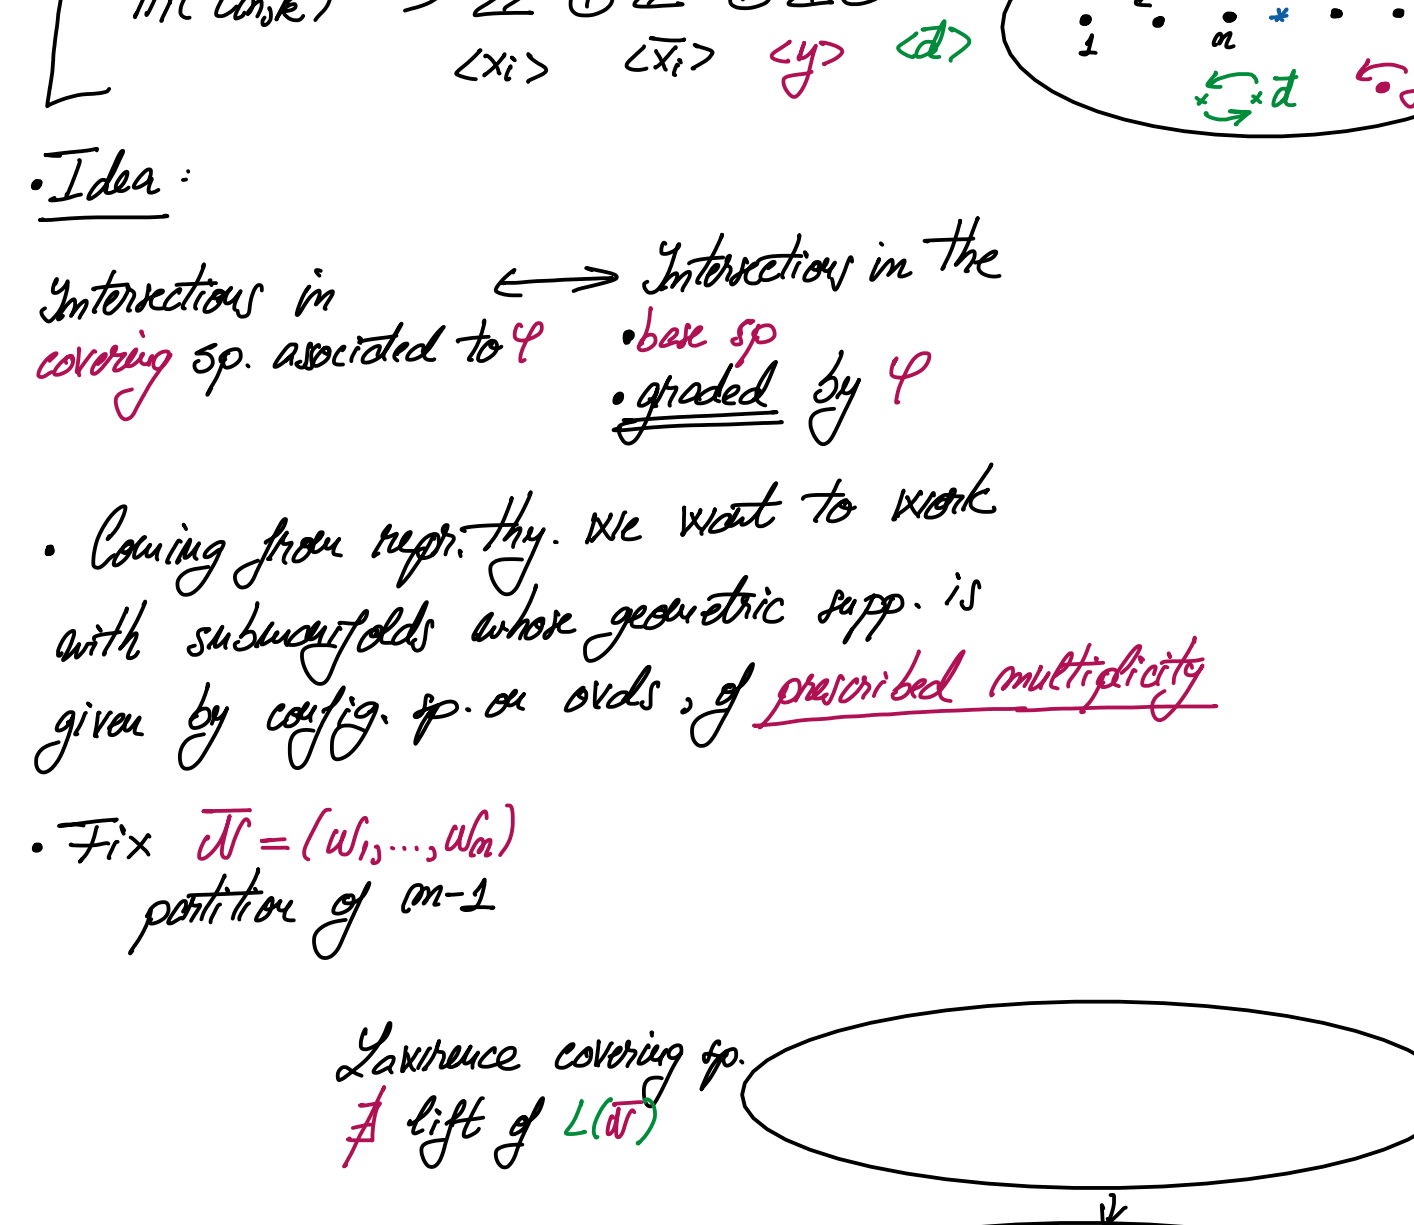 <x_i> <x̄_i> <y> <d>
1 n * d
• Idea :
Intersections in ⟷ Intersections in the
covering sp. asociated to φ • base sp
• graded by φ
• Coming from repr. thy. we want to work
with submanifolds whose geometric supp. is
given by config. sp. on ovals, of prescribed multiplicity
• Fix N̄ = (N_1, ..., N_n)
partition of m-1
Lawrence covering sp.
∄ lift of L(N̄)